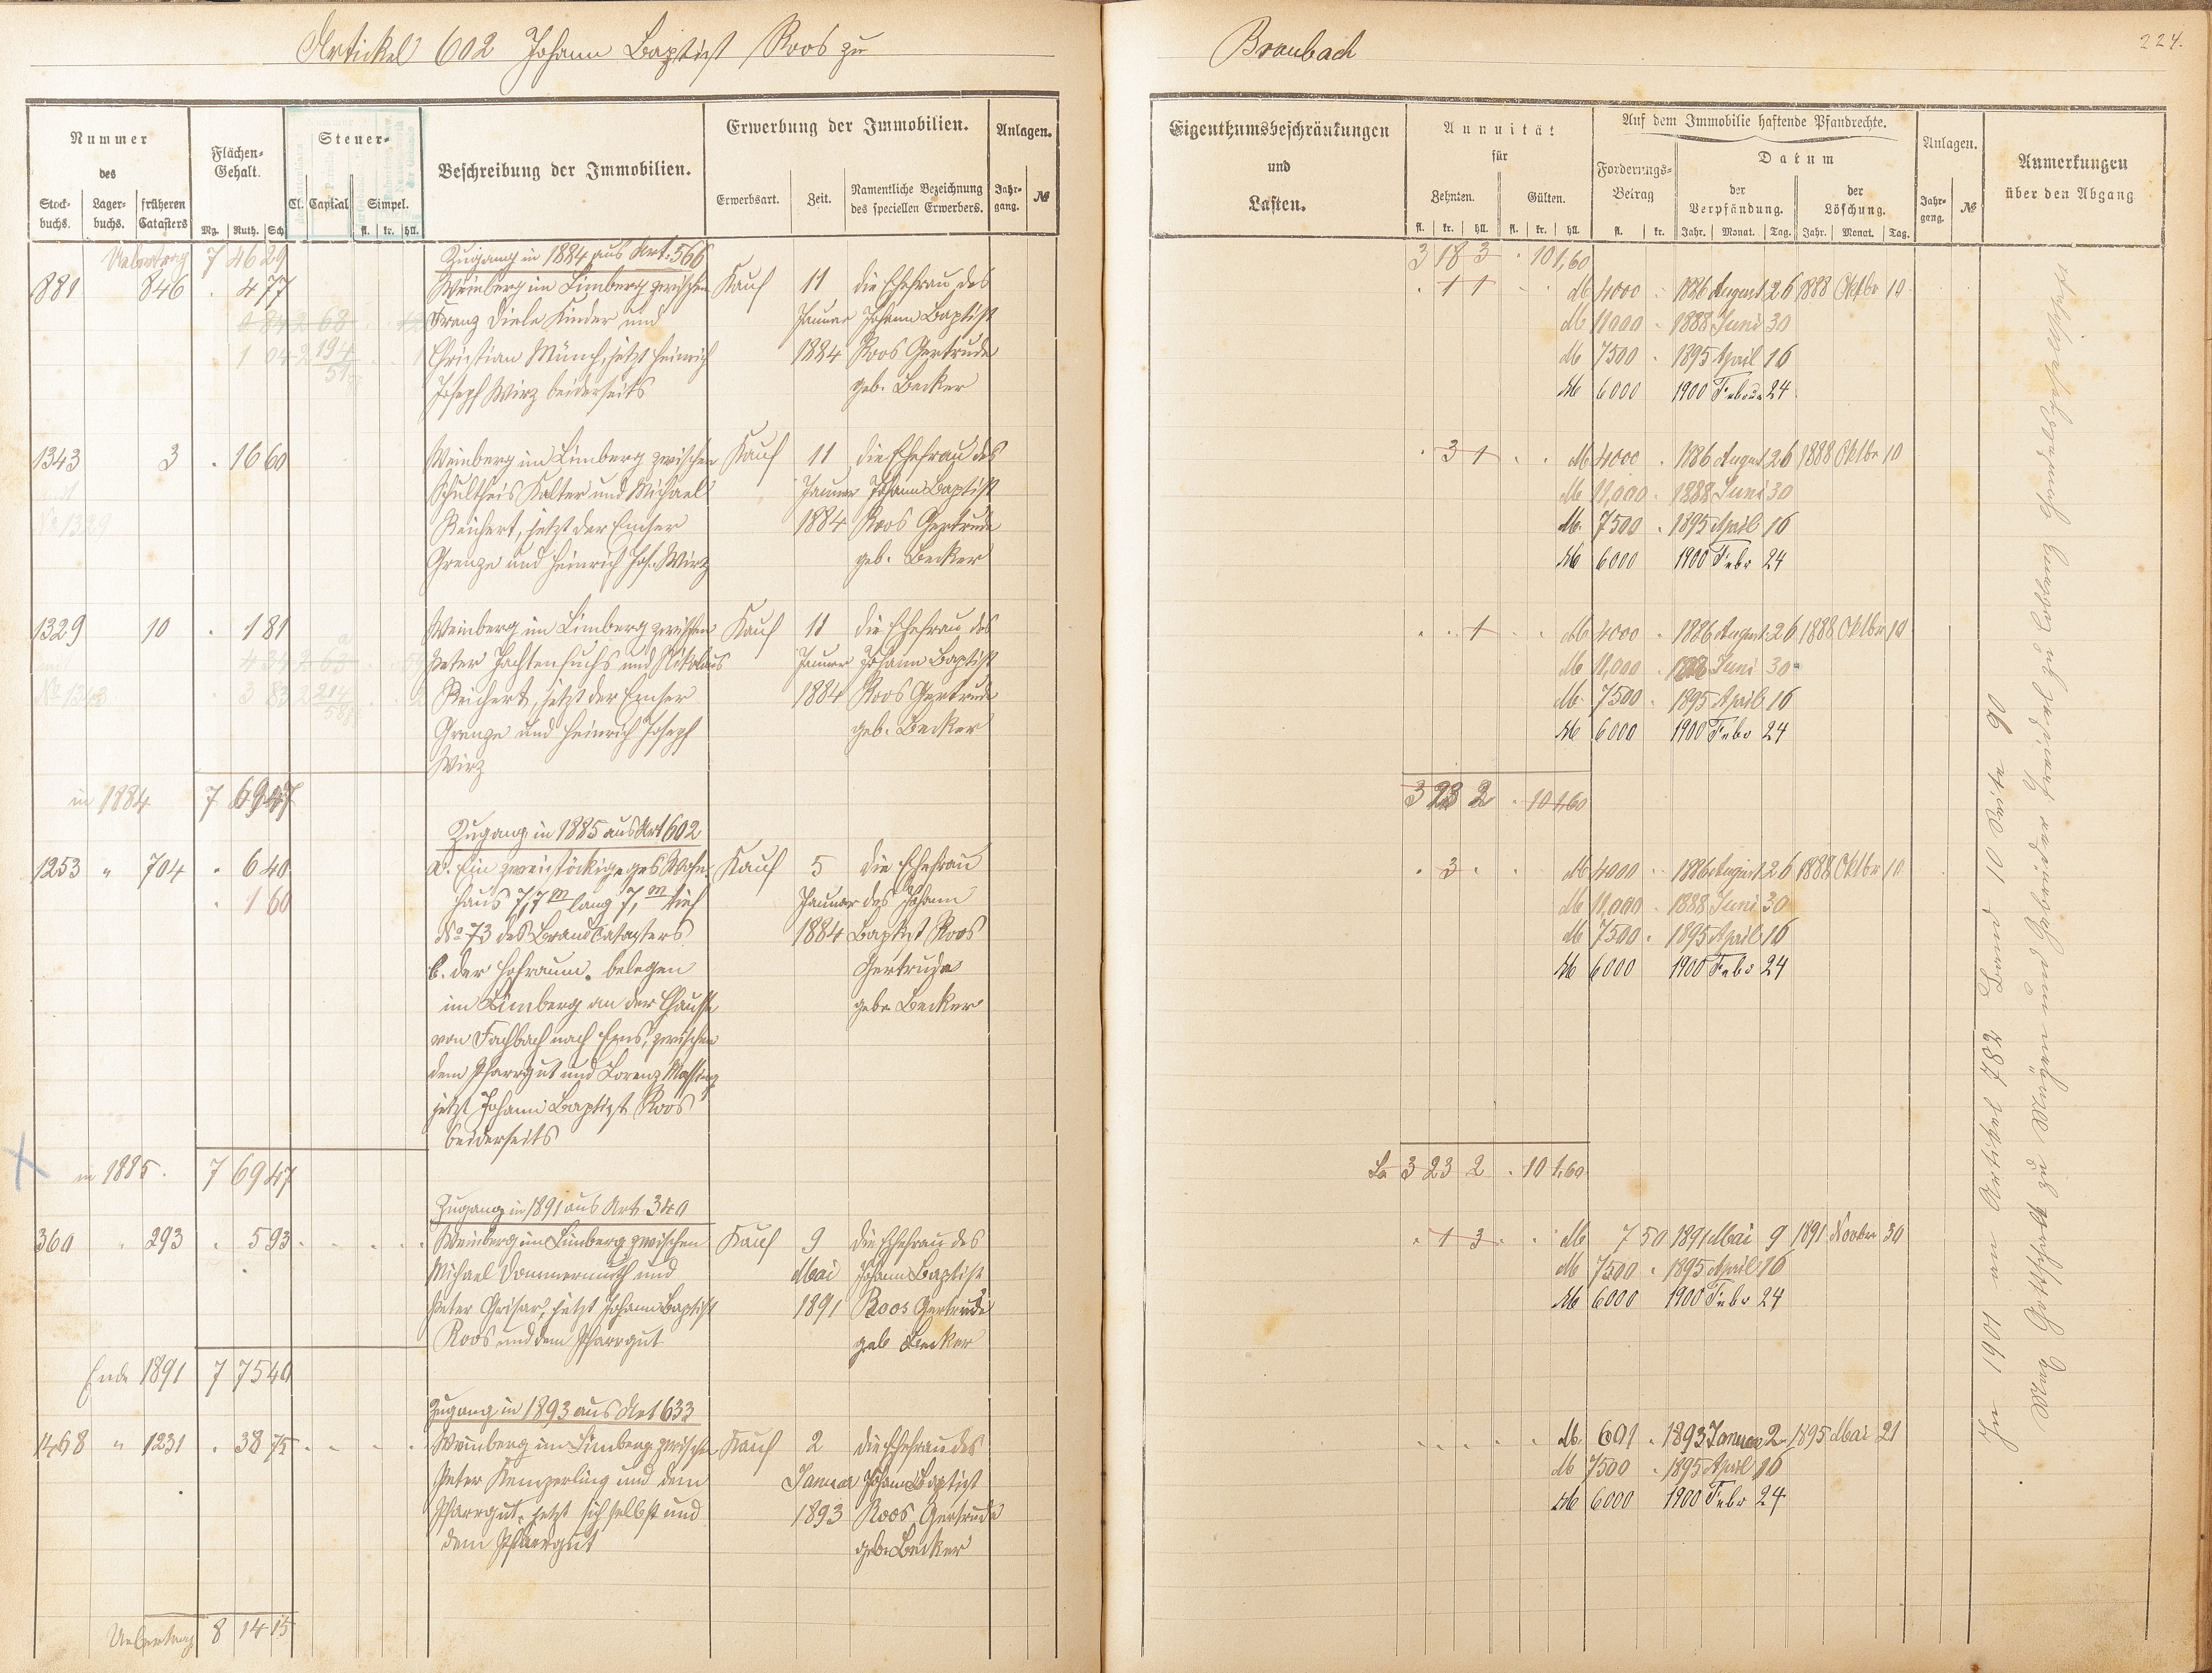 Artickel 602 Johann Baptist Roos zu
Braubach
224.
Nummer
des
Stock-
buchs.
Lager-
buchs.
früheren
Catasters
Flächen-
Gehalt.
Mg. Ruth. Sch
Steuer-
Cl. Capital Simpel.
fl. kr. hll.
Beschreibung der Immobilien.
Erwerbung der Immobilien.
Erwerbsart. Zeit. Namentliche Bezeichnung
des speciellen Erwerbers.
Anlagen.
Jahr-
gang. №
Uebertrag 7 46 29
Zugang in 1884 aus Art. 566
881 846 . 4 77 Weinberg im Limberg zwischen Kauf 11 die Ehefrau des
Franz Diele Kinder und Januar Johann Baptist
Christian Münch, jetzt Heinrich 1884 Roos Gertrude
Joseph Wirz beiderseits geb. Becker
1343 3 . 16 60 Weinberg im Limberg zwischen Kauf 11 die Ehefrau des
Schultheis Kalter und Michael Januar Johann Baptist
№ 1329 Reichert, jetzt der Emser 1884 Roos Gertrude
Grenze und Heinrich Jos. Wirz geb. Becker
1329 10 . 1 81 Weinberg im Limberg zwischen Kauf 11 die Ehefrau des
Peter Hachtenfuchs und Nikolaus Januar Johann Baptist
№ 1343 Reichert, jetzt der Emser 1884 Roos Gertrude
Grenze und Heinrich Joseph geb. Becker
Wirz
in 1884 7 69 47
Zugang in 1885 aus Art 602
1253 " 704 . 6 40 a. Ein zweistöckiges Wohn- Kauf 5 die Ehefrau
. 1 60 haus 7,7 m lang 7,1 m tief Januar des Johann
№ 73 des Brandcatasters 1884 Baptist Roos
b. der Hofraum. belegen Gertrude
im Limberg an der Chaussee geb. Becker
von Fachbach nach Ems, zwischen
dem Pfarrgut und Lorenz Massing
jetzt Johann Baptist Roos
beiderseits
in 1885. 7 69 47
Zugang in 1891 aus Art. 340
360 " 293 . 5 93 Weinberg im Limberg zwischen Kauf 9 die Ehefrau des
Michael Dommermuth und Mai Johann Baptist
Peter Griser, jetzt Johann Baptist 1891 Roos Gertrude
Roos und dem Pfarrgut geb Becker
Ende 1891 7 75 40
Zugang in 1893 aus Art 633
1468 " 1231 . 38 75 Weinberg im Limberg zwischen Kauf 2 die Ehefrau des
Peter Kemperling und dem Januar Johann Baptist
Pfarrgut, jetzt sich selbst und 1893 Roos Gertrude
dem Pfarrgut geb. Becker
Uebertrag 8 14 15
Eigenthumsbeschränkungen
und
Lasten.
Annuität
für
Zehnten. Gülten.
fl. kr. hll. fl. kr. hll.
Auf dem Immobilie haftende Pfandrechte.
Forderungs-
Betrag
fl. kr.
Datum
der
Verpfändung.
Jahr. Monat. Tag.
der
Löschung.
Jahr. Monat. Tag.
Anlagen.
Jahr-
gang. №
Anmerkungen
über den Abgang
3 18 3 . 10 1,60
. 1 1 M 4000 . 1886 August 26 1888 Oktbr 10
M 11000 . 1888 Juni 30
M 7500 . 1895 April 16
M 6000 1900 Februar 24
. 3 1 . . M 4000 . 1886 August 26 1888 Oktbr 10
M 11,000 . 1888 Juni 30
M. 7500 . 1895 April 16
M 6000 1900 Febr 24
. . 1 . . M 4000 . 1886 August 26 1888 Oktbr 10
M 11,000 . 1888 Juni 30
M. 7500 . 1895 April 16
M 6000 1900 Febr 24
3 23 2 . 10 1,60
. 3 . M 4000 . 1886 August 26 1888 Oktbr 10
M 11,000 . 1888 Juni 30
M 7500 . 1895 April 16
M 6000 1900 Febr 24
La 3 23 2 . 10 1,60
. 1 3 . . M 750 1891 Mai 9 1891 Novbr 30
M 7500 . 1895 April 16
M 6000 1900 Febr 24
M. 601 . 1893 Januar 2 1895 Mai 21
M 7500 . 1895 April 16
M 6000 1900 Febr 24
In 1901 an Artikel 782 Band 10 Seite 90
Max Gottschalk zu Nürgen und Gebrüder Treidel zu Coblenz Handelsgesellschaft